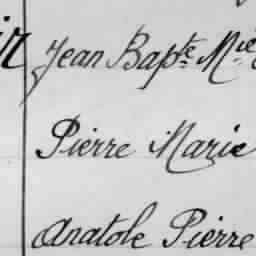 Jean Bapte Mie
Pierre Marie
Anatole Pierre